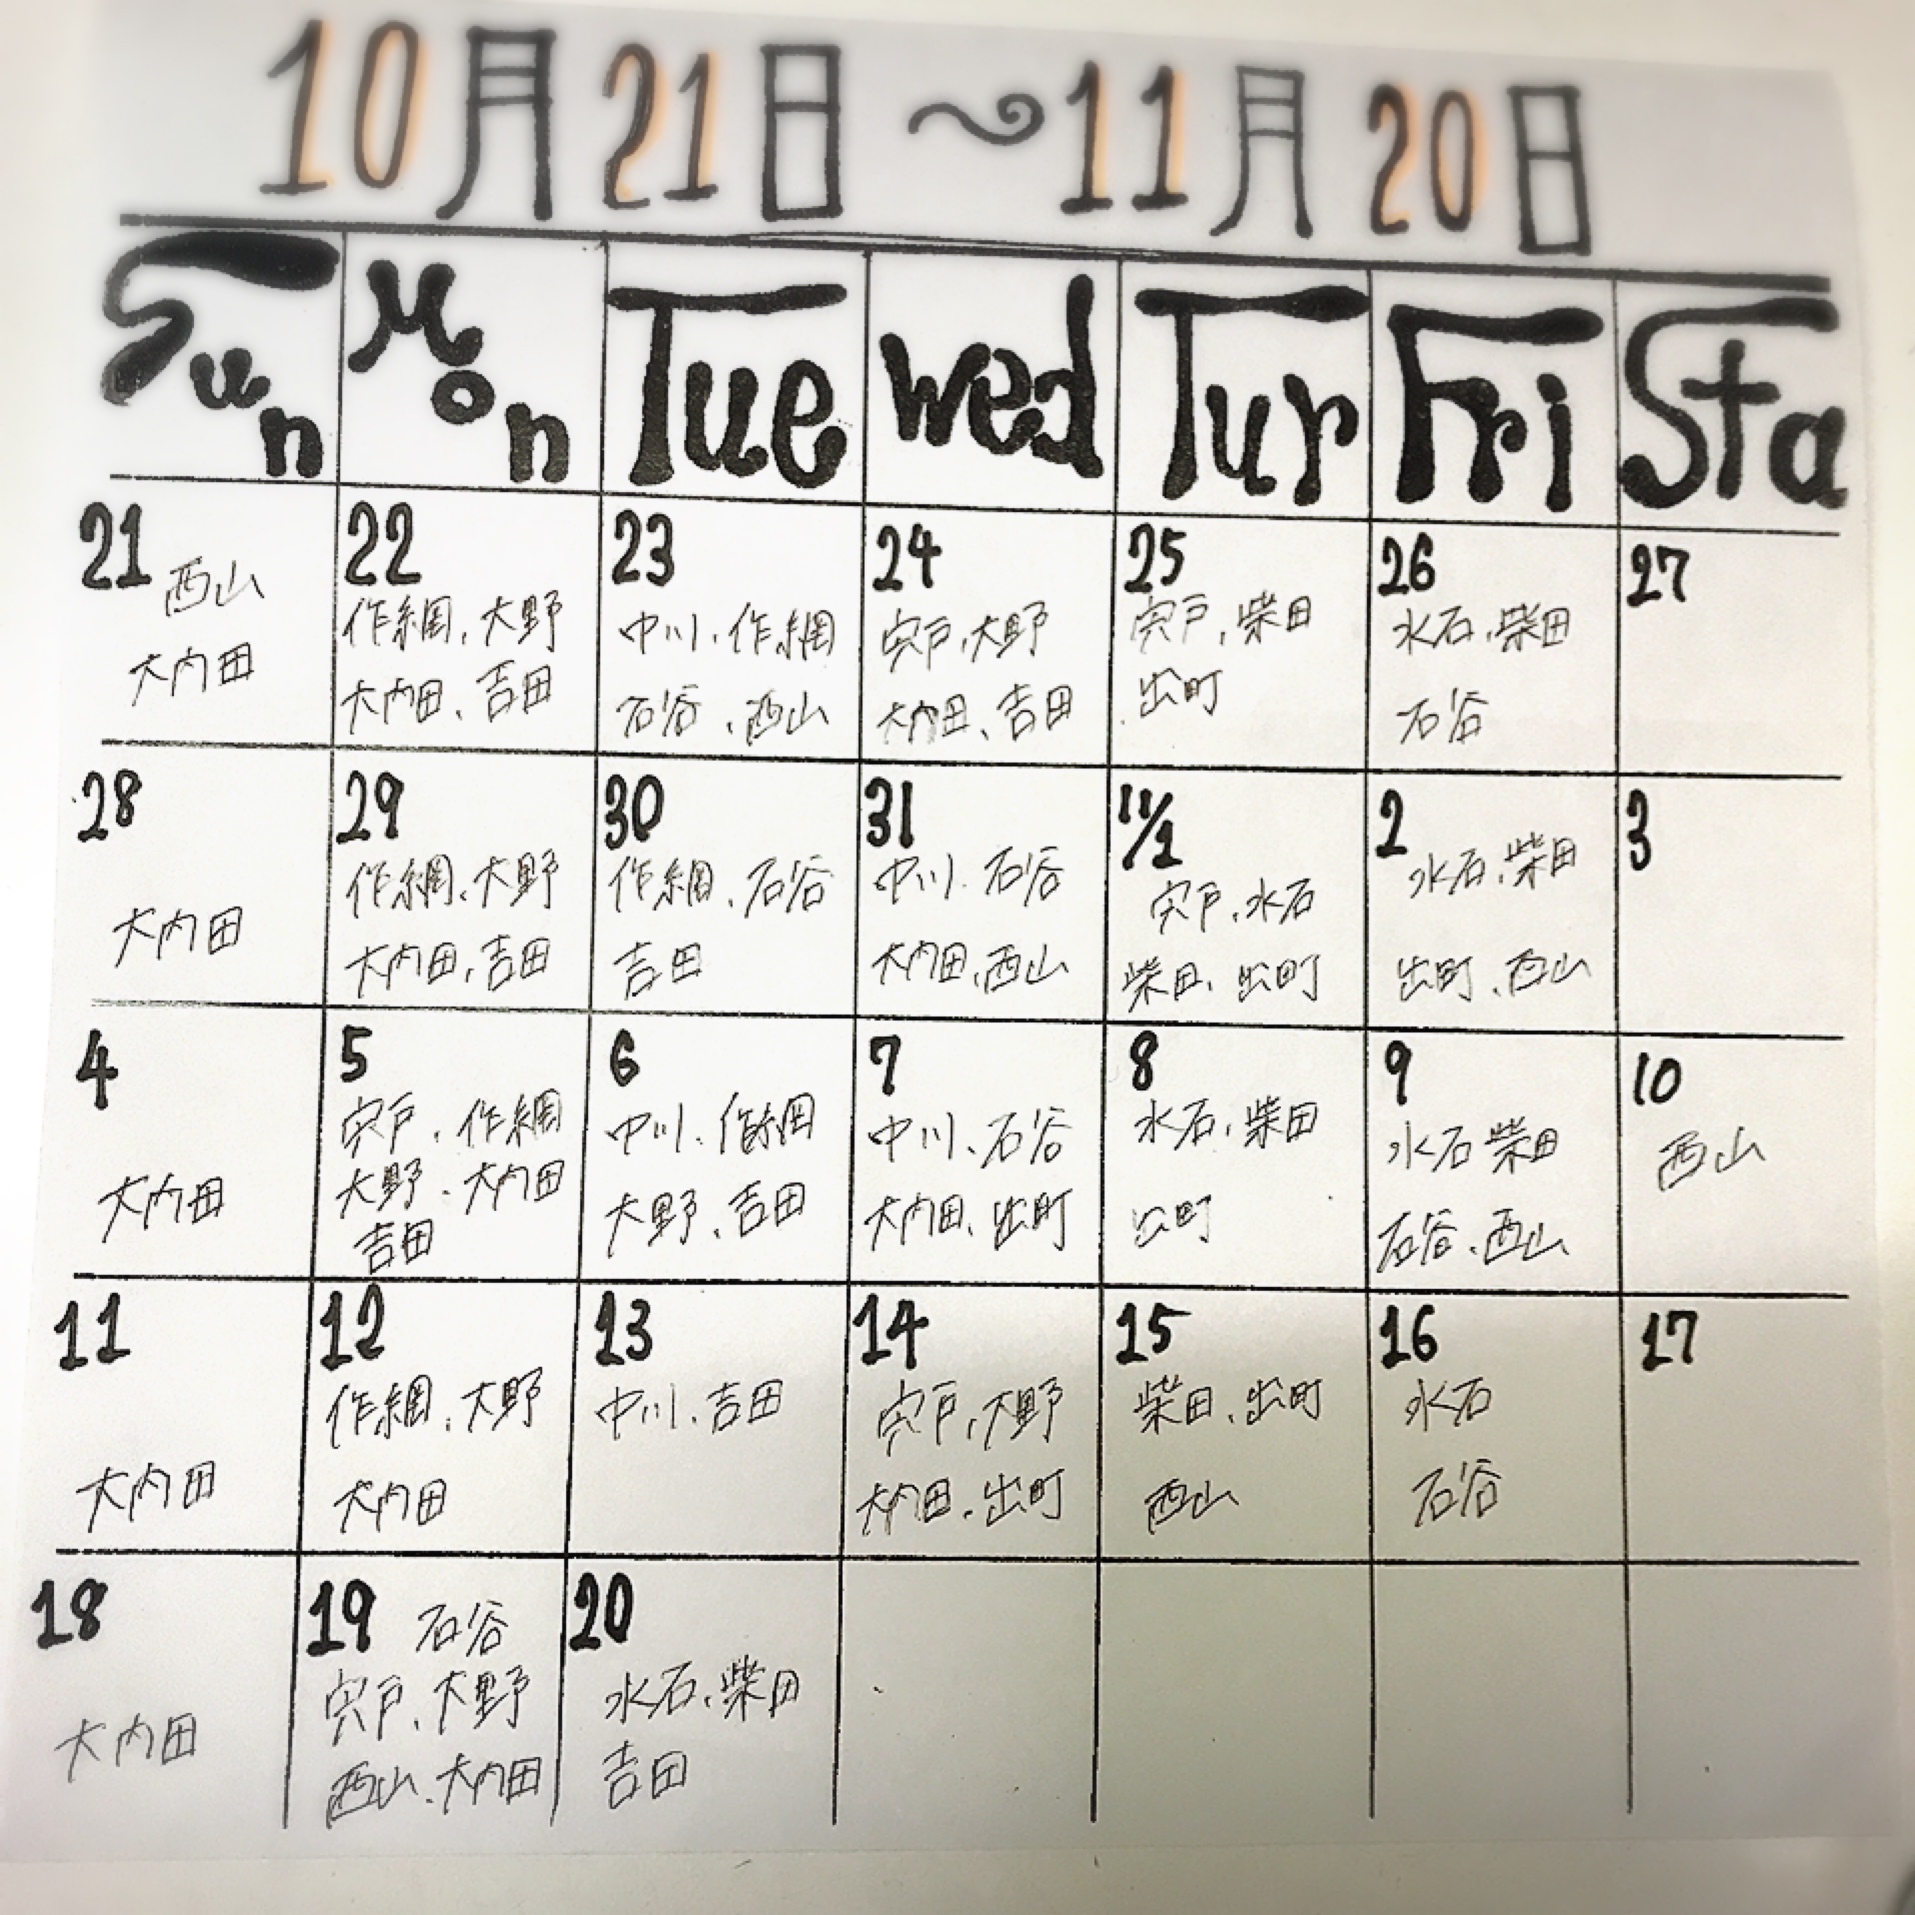 10月21日～11月20日
Sun Mon Tue Wed Tur Fri Sta
21 西山
大内田
22
作網、大野
大内田、吉田
23
中川、作網
石谷、西山
24
宍戸、大野
大内田、吉田
25
宍戸、柴田
出町
26
水石、柴田
石谷
27
28
大内田
29
作網、大野
大内田、吉田
30
作網、石谷
吉田
31
中川、石谷
大内田、西山
11/1
宍戸、水石
柴田、出町
2
水石、柴田
出町、西山
3
4
大内田
5
宍戸、作網
大野、大内田
吉田
6
中川、作網
大野、吉田
7
中川、石谷
大内田、出町
8
水石、柴田
出町
9
水石 柴田
石谷、西山
10
西山
11
大内田
12
作網、大野
大内田
13
中川、吉田
14
宍戸、大野
大内田、出町
15
柴田、出町
西山
16
水石
石谷
17
18
大内田
19 石谷
宍戸、大野
西山、大内田
20
水石、柴田
吉田